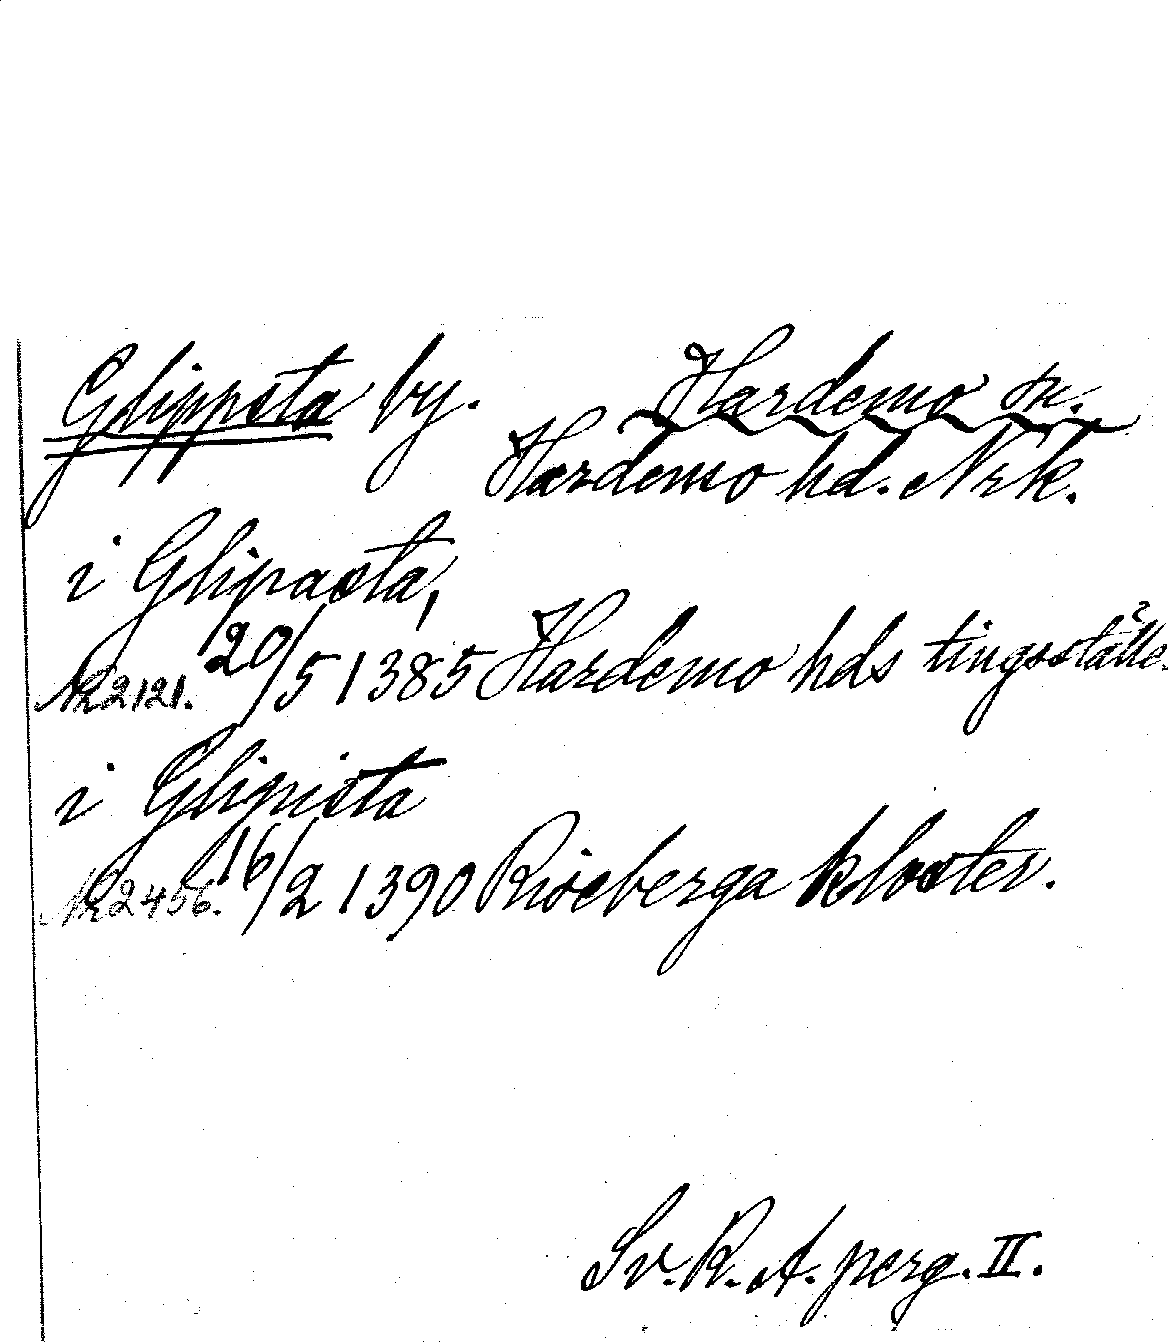 Glippsta by. Hardemo sn.
Hardemo hd. Nrk.
i Glipasta,
Nr 2121. 20/5 1385 Hardemo hds tingsställe.
i Glipista
Nr 2456. 16/2 1390 Riseberga kloster.
Sv. R. A. perg. II.